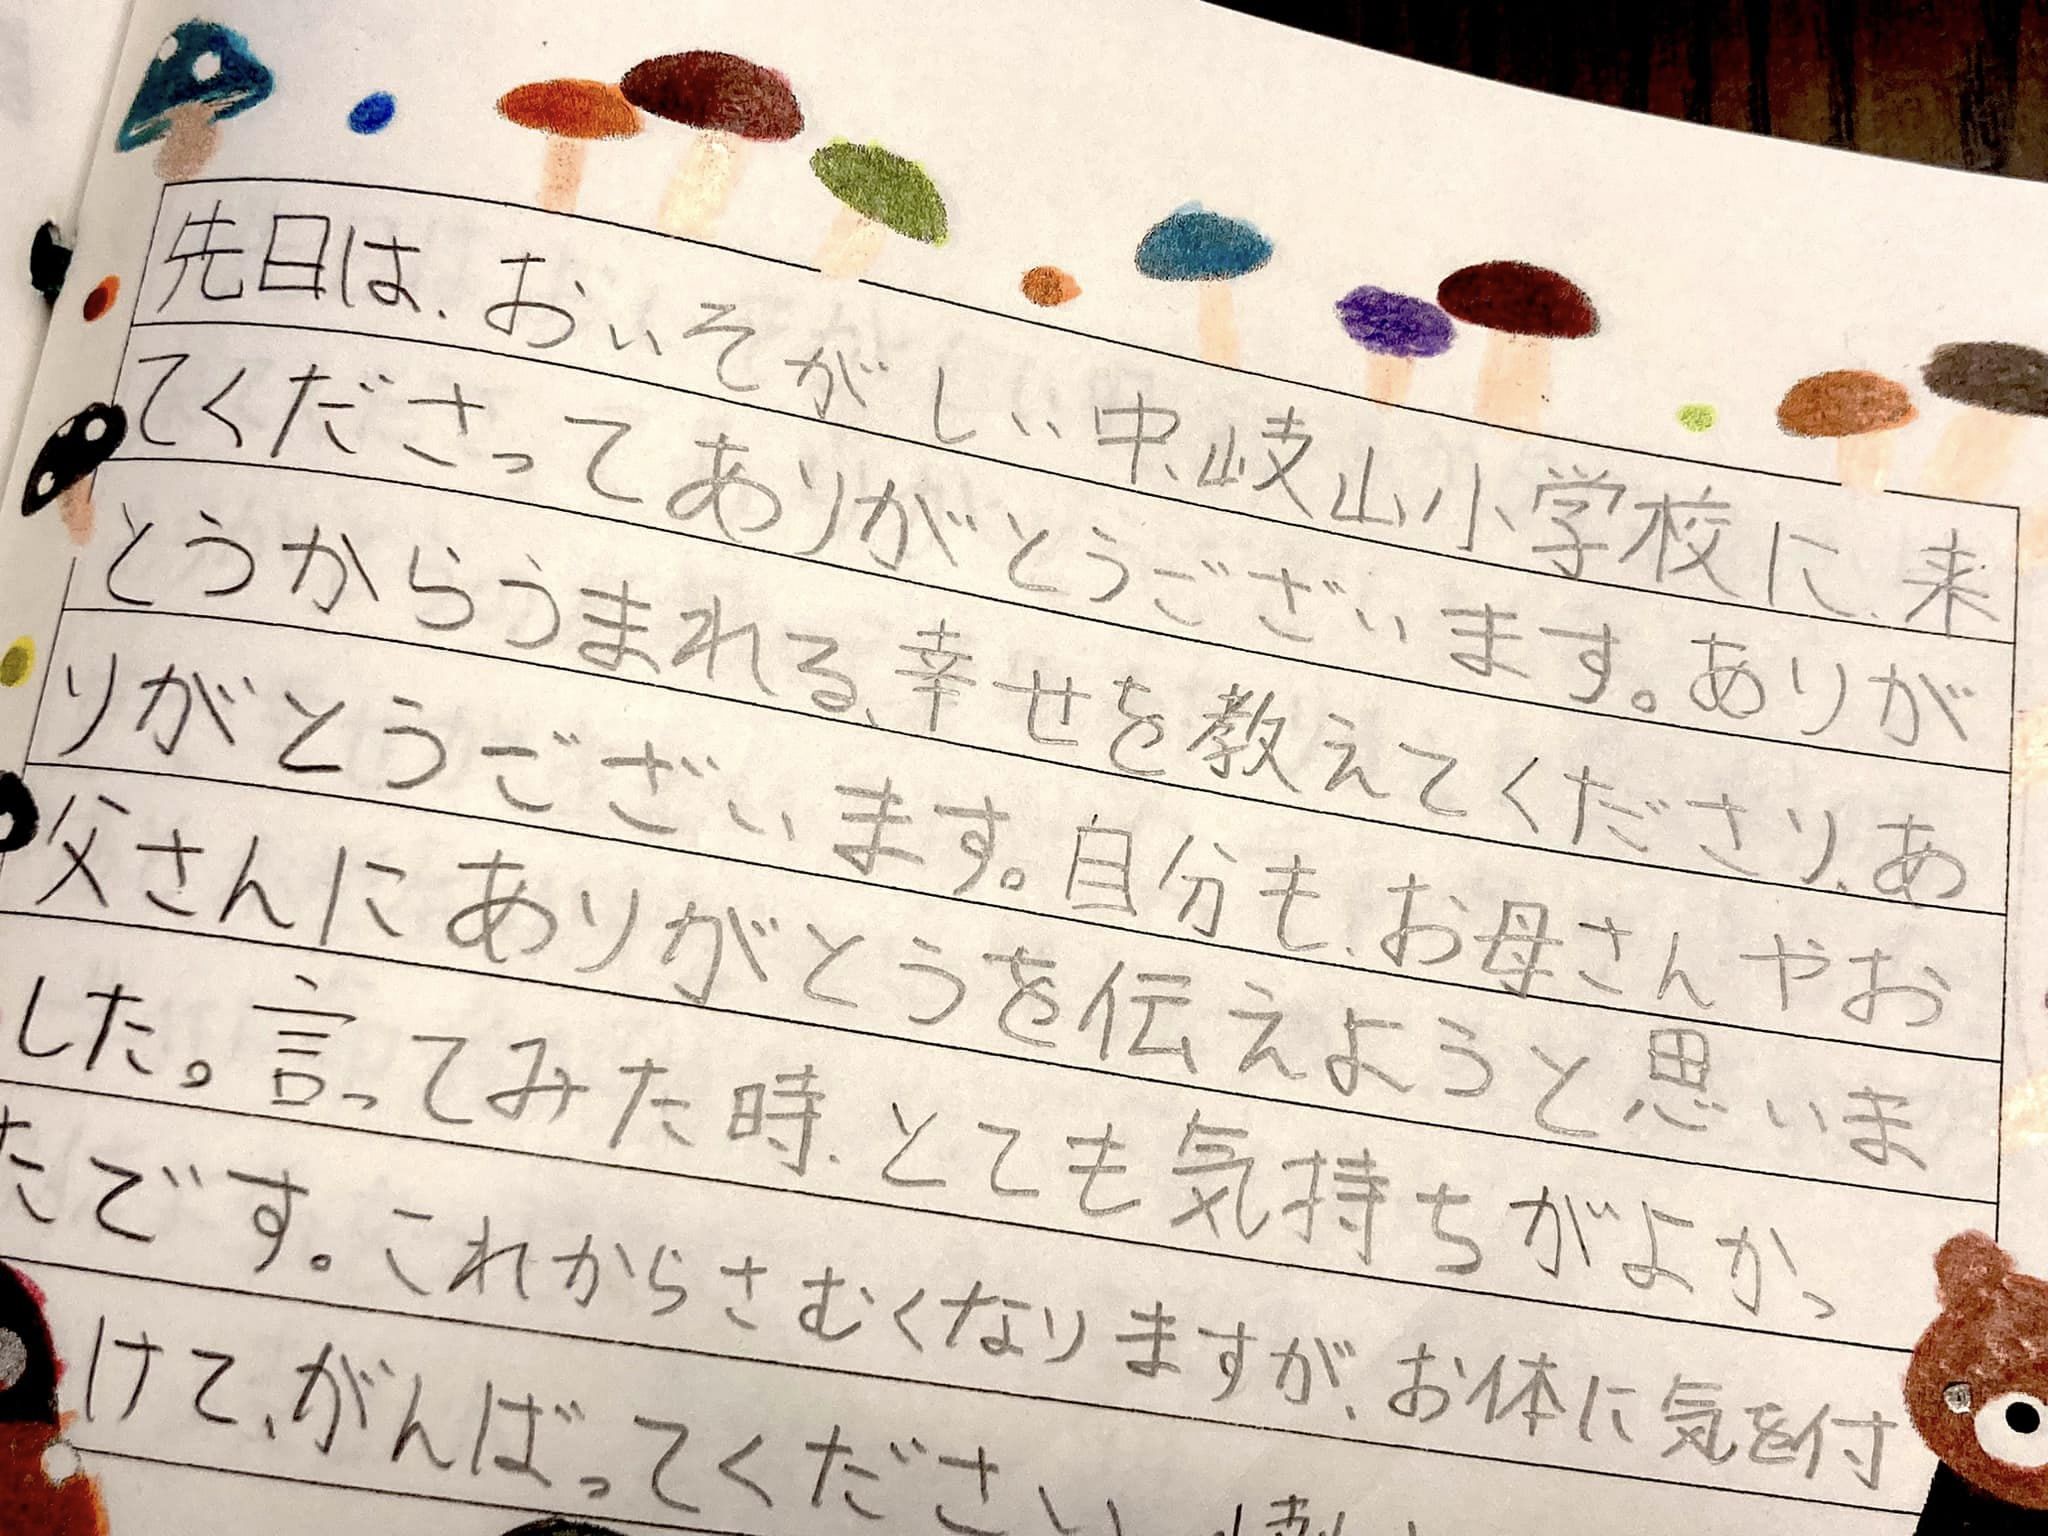 先日は、おいそがしい中、岐山小学校に、来
てくださってありがとうございます。ありが
とうからうまれる、幸せを教えてくださり、あ
りがとうございます。自分も、お母さんやお
父さんにありがとうを伝えようと思いま
した。言ってみた時、とても気持ちがよかっ
たです。これからさむくなりますが、お体に気を付
けて、がんばってください